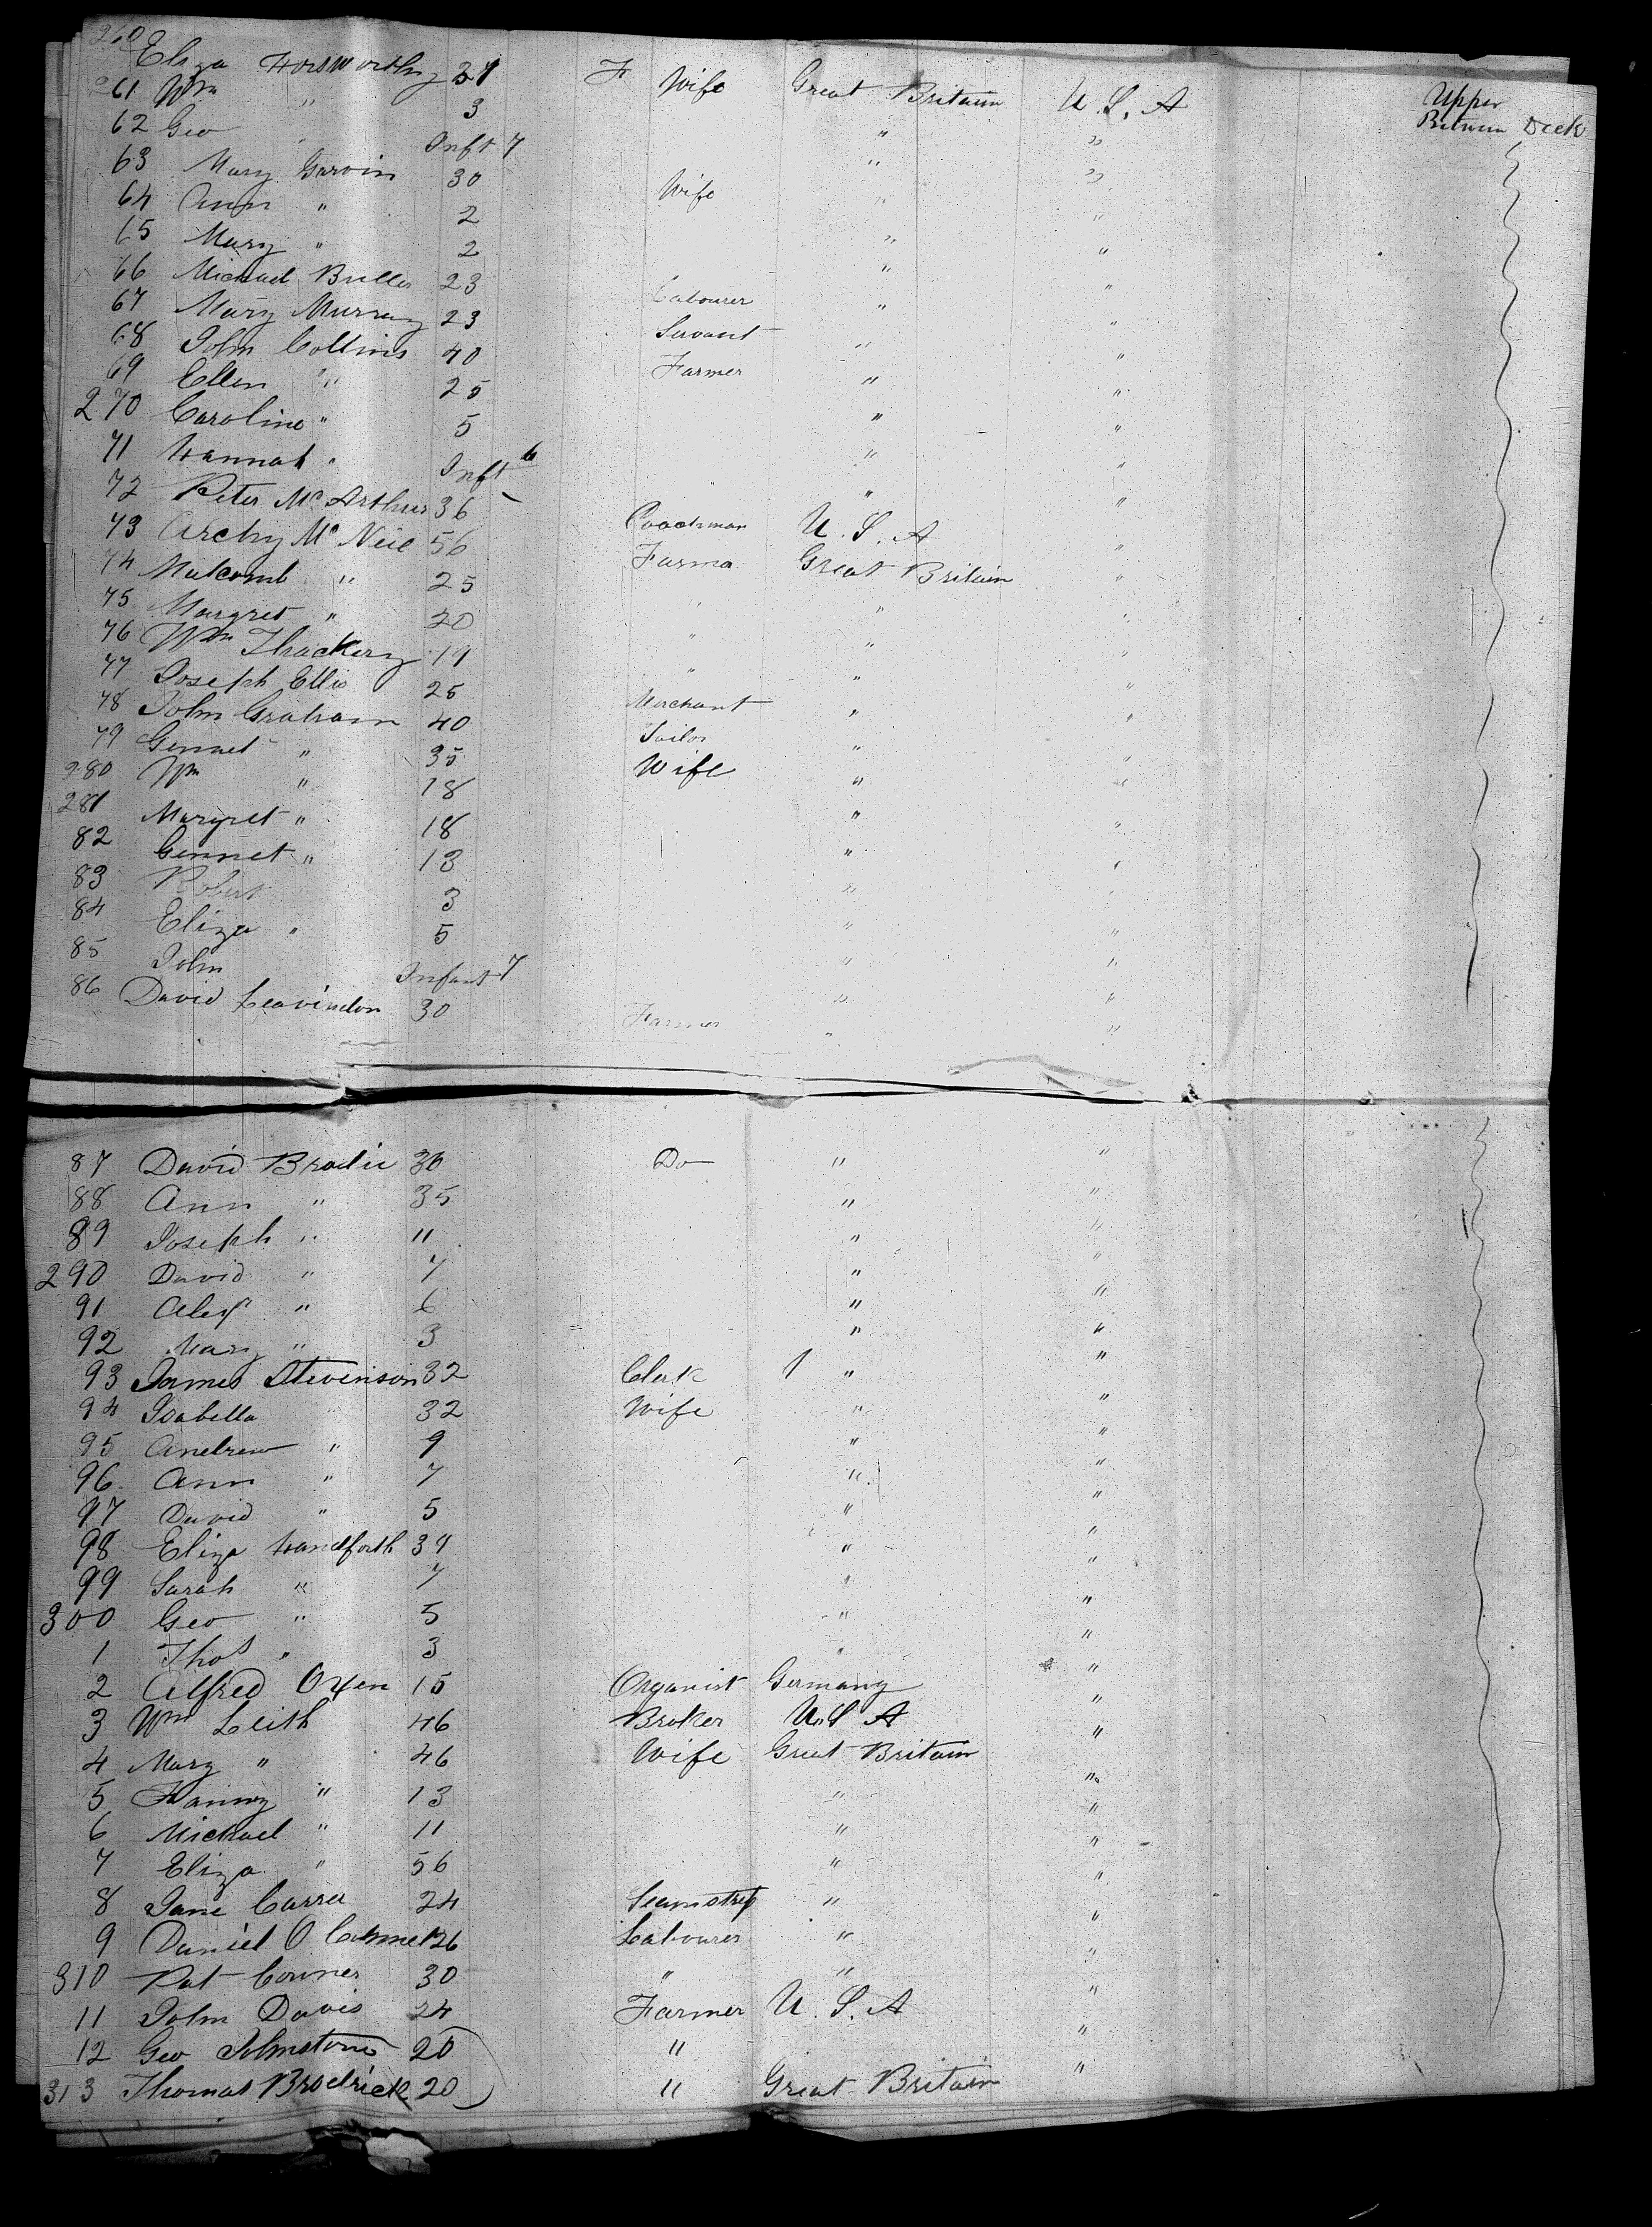 260 Eliza Horsworthy 37 F Wife Great Britain U.S.A Upper Between Deck
261 Wm " 3 " "
62 Geo " Inft 7 " "
63 Mary Garvin 30 Wife " "
64 Ann " 2 " "
65 Mary " 2 " "
66 Michael Buller 23 Labourer " "
67 Mary Murray 23 Servant " "
68 John Collins 40 Farmer " "
69 Ellen " 25 " "
270 Caroline " 5 " "
71 Hannah " Inft 6 " "
72 Peter McArthur 36 Coachman U.S.A "
73 Archy McNeil 56 Farmer Great Britain "
74 Malcomb " 25 " " "
75 Margret " 20 " " "
76 Wm Thackery 19 " " "
77 Joseph Ellis 25 Merchant " "
78 John Graham 40 Tailor " "
79 Gennet " 35 Wife " "
280 Wm " 18 " "
281 Margret " 18 " "
82 Gennet " 13 " "
83 Robert 3 " "
84 Eliza " 5 " "
85 John Infant 7 " "
86 David Leavindon 30 Farmer " "
87 David Brodie 36 Do " "
88 Ann " 35 " "
89 Joseph " 11 " "
290 David " 7 " "
91 Alexr " 6 " "
92 Mary " 3 " "
93 James Stevenson 32 Clerk 1 " "
94 Isabella " 32 Wife " "
95 Andrew " 9 " "
96 Ann " 7 " "
97 David " 5 " "
98 Eliza Handforth 39 " "
99 Sarah " 7 " "
300 Geo " 5 " "
1 Thos " 3 " "
2 Alfred Oxen 15 Organist Germany "
3 Wm Leith 46 Broker U.S A "
4 Mary " 46 Wife Great Britain "
5 Fanny " 13 " "
6 Michael " 11 " "
7 Eliza " 56 " "
8 Jane Carrer 24 Seamstress " "
9 Daniel O Connell 26 Labourer " "
310 Pat Conner 30 " " "
11 John Davis 24 Farmer U.S.A "
12 Geo Johnstone 20 " "
313 Thomas Brodrick 20 " Great Britain "